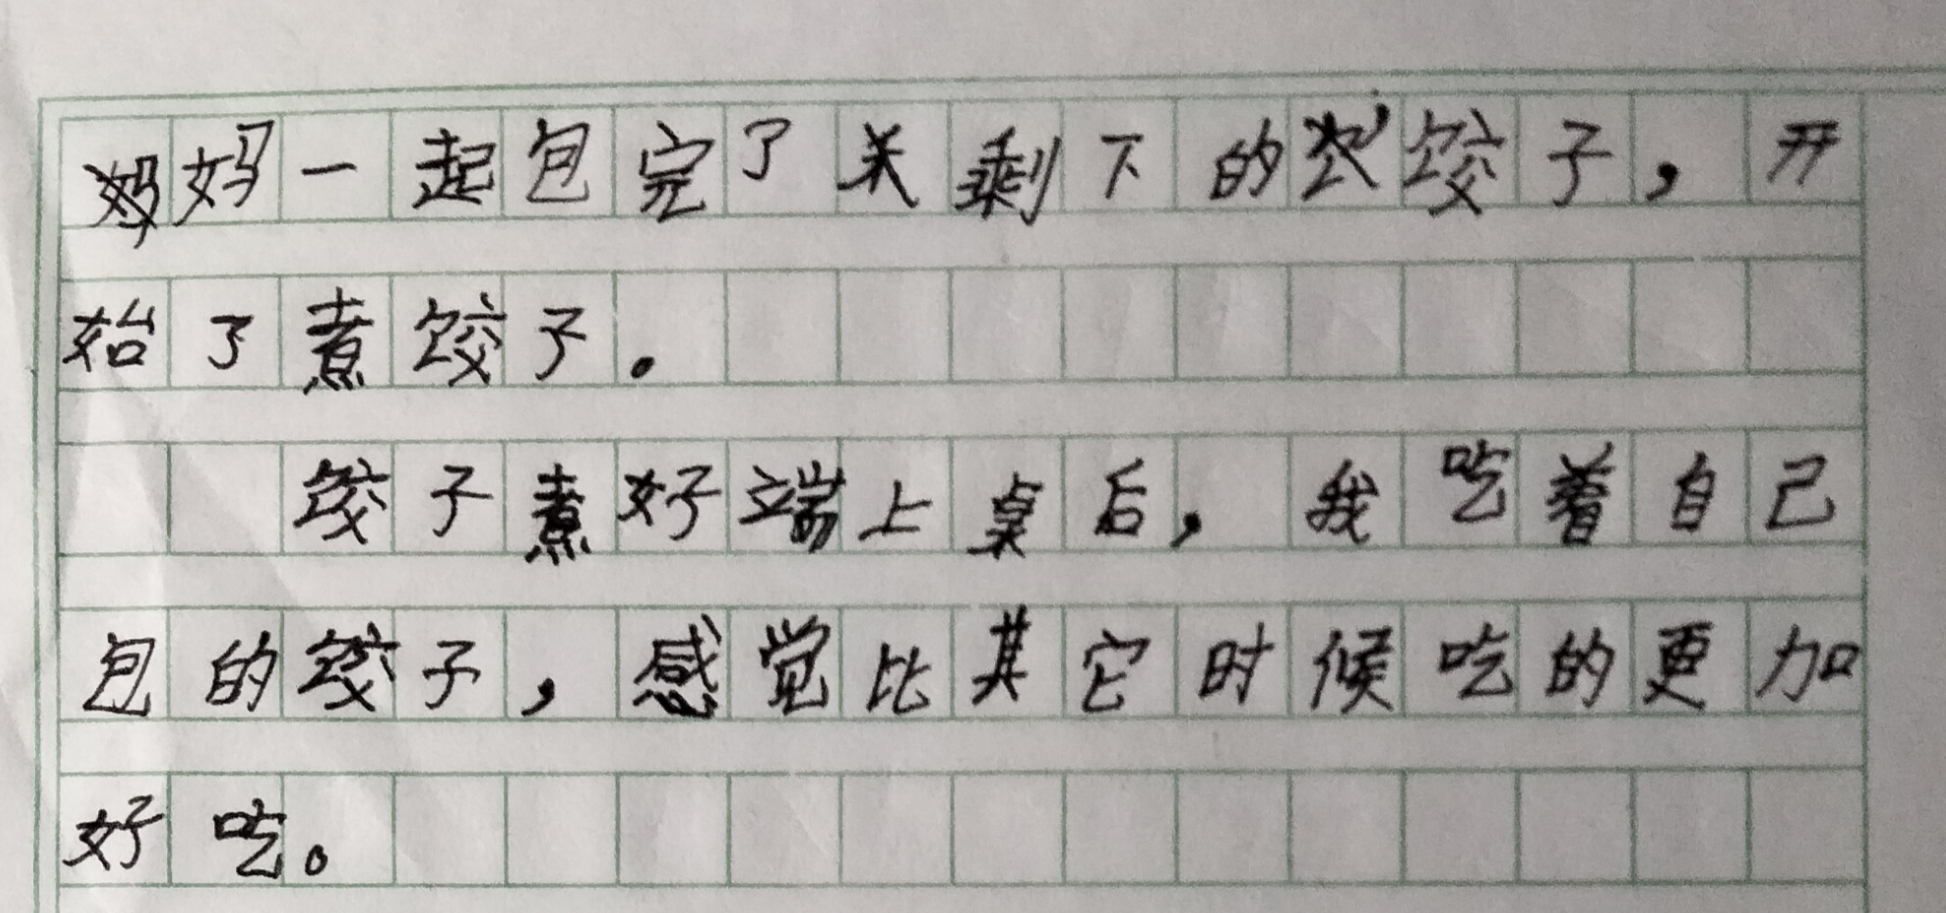 妈妈一起包完了关剩下的饺子，开
始了煮饺子。
饺子煮好端上桌后，我吃着自己
包的饺子，感觉比其它时候吃的更加
好吃。